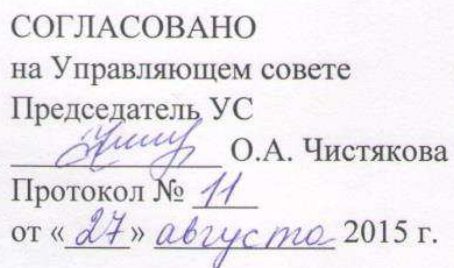 СОГЛАСОВАНО
на Управляющем совете
Председатель УС
О.А. Чистякова
Протокол № 11
от «27» августа 2015 г.